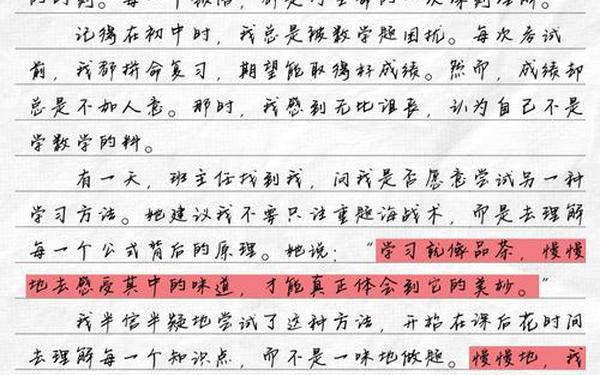 记得在初中时，我总是被数学题困扰。每次考试
前，我都拼命复习，期望能取得好成绩。然而，成绩却
总是不如人意。那时，我感到无比沮丧，认为自己不是
学数学的料。
有一天，班主任找到我，问我是否愿意尝试另一种
学习方法。她建议我不要只注重题海战术，而是去理解
每一个公式背后的原理。她说：“学习就像品茶，慢慢
地去感受其中的味道，才能真正体会到它的美妙。”
我半信半疑地尝试了这种方法，开始在课后花时间
去理解每一个知识点，而不是一味地做题。慢慢地，我